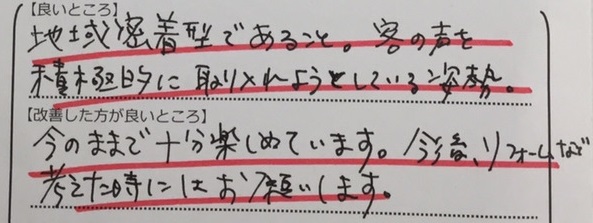 【良いところ】
地域密着型であること。客の声を
積極的に取り入れようとしている姿勢。
【改善した方が良いところ】
今のままで十分楽しめています。今後、リフォームなど
考えた時にはお願いします。